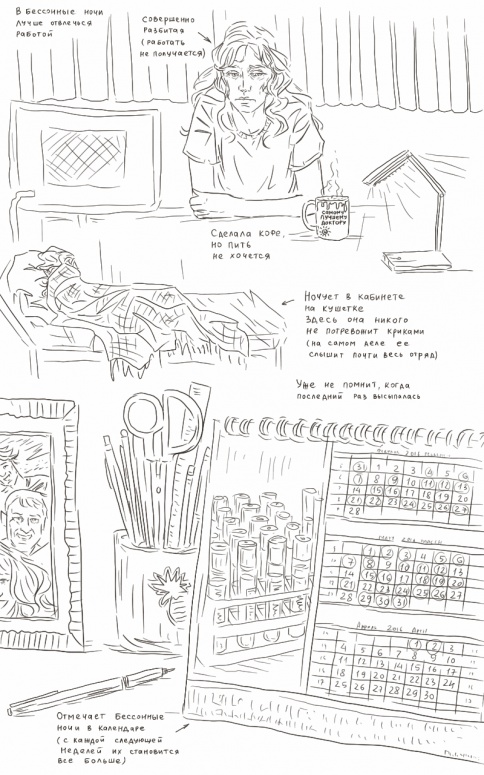 В бессонные ночи
лучше отвлечься
работой
Совершенно
разбитая
(работать
не получается)
САМОМУ
ЛУЧШЕМУ
ДОКТОРУ
Сделала кофе,
но пить
не хочется
Ночует в кабинете
на кушетке
Здесь она никого
не потревожит криками
(на самом деле ее
слышит почти весь отряд)
Уже не помнит, когда
последний раз высыпалась
31 1 2 3 4 5 6
7 8 9 10 11 12 13
14 15 16 17 18 19 20
21 22 23 24 25 26 27
28
1 2 3 4 5 6
7 8 9 10 11 12 13
14 15 16 17 18 19 20
21 22 23 24 25 26 27
28 29 30 31
Апрель 2016 April
1 2 3
4 5 6 7 8 9 10
11 12 13 14 15 16 17
18 19 20 21 22 23 24
25 26 27 28 29 30
Отмечает бессонные
ночи в календаре
(с каждой следующей
неделей их становится
все больше)